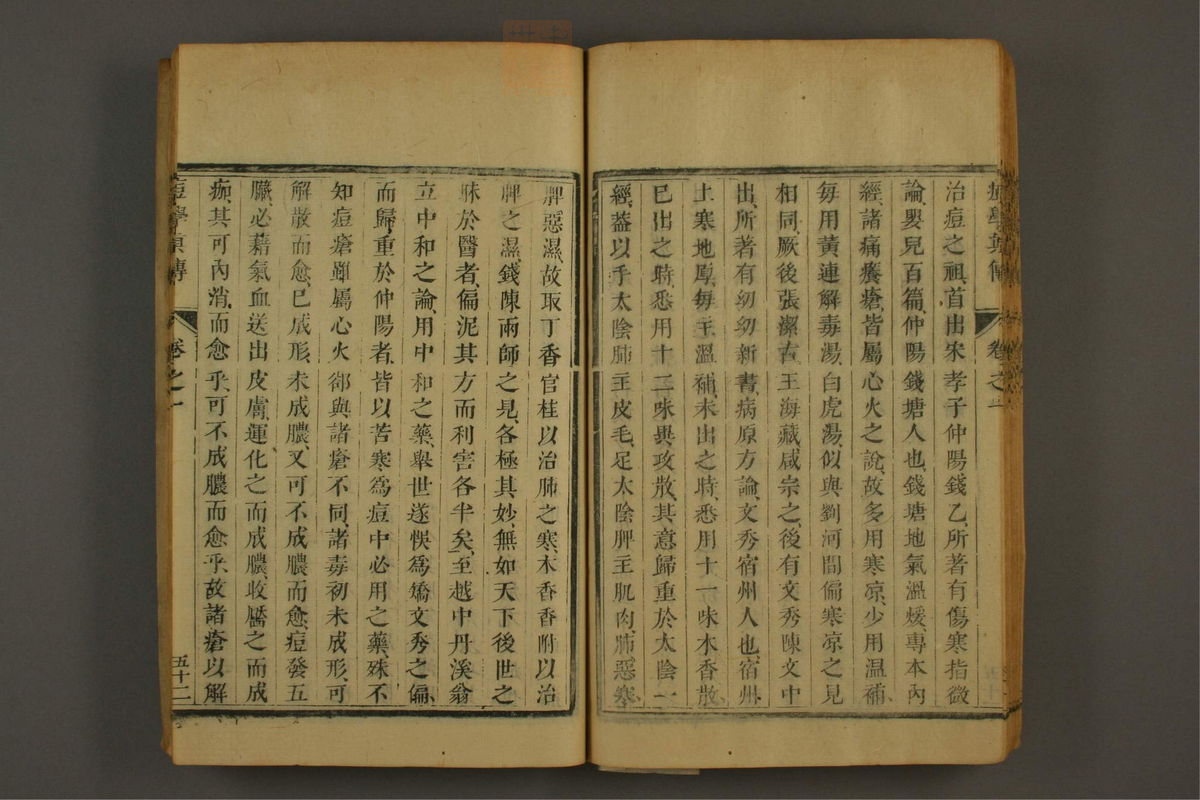 治痘之祖、首出宋孝子仲陽錢乙、所著有傷寒指微
論、嬰兒百篇、仲陽錢塘人也、錢塘地氣溫煖、專本內
經、諸痛癢瘡、皆屬心火之說、故多用寒凉、少用温補、
每用黃連解毒湯、白虎湯、似與劉河間偏寒凉之見
相同、厥後張潔古王海藏、咸宗之、後有文秀陳文中
出、所著有幼幼新書、病原方論、文秀宿州人也、宿州
土寒地厚、每主溫補、未出之時、悉用十一味木香散、
已出之時、悉用十二味異攻散、其意歸重於太陰一
經、葢以手太陰肺主皮毛、足太陰脾主肌肉、肺惡寒、
脾惡濕、故取丁香官桂以治肺之寒、木香香附以治
脾之濕、錢陳兩師之見、各極其妙、無如天下後世之
昧於醫者、偏泥其方而利害各半矣、至越中丹溪翁
立中和之論、用中和之藥、舉世遂悞爲矯文秀之偏、
而歸重於仲陽者、皆以苦寒爲痘中必用之藥、殊不
知痘瘡雖屬心火、却與諸瘡不同、諸毒初未成形、可
解散而愈、已成形、未成膿、又可不成膿而愈、痘發五
臟、必藉氣血送出皮膚、運化之而成膿、收靨之而成
痂、其可內消、而愈乎、可不成膿而愈乎、故諸瘡以解
卷之一
五十二